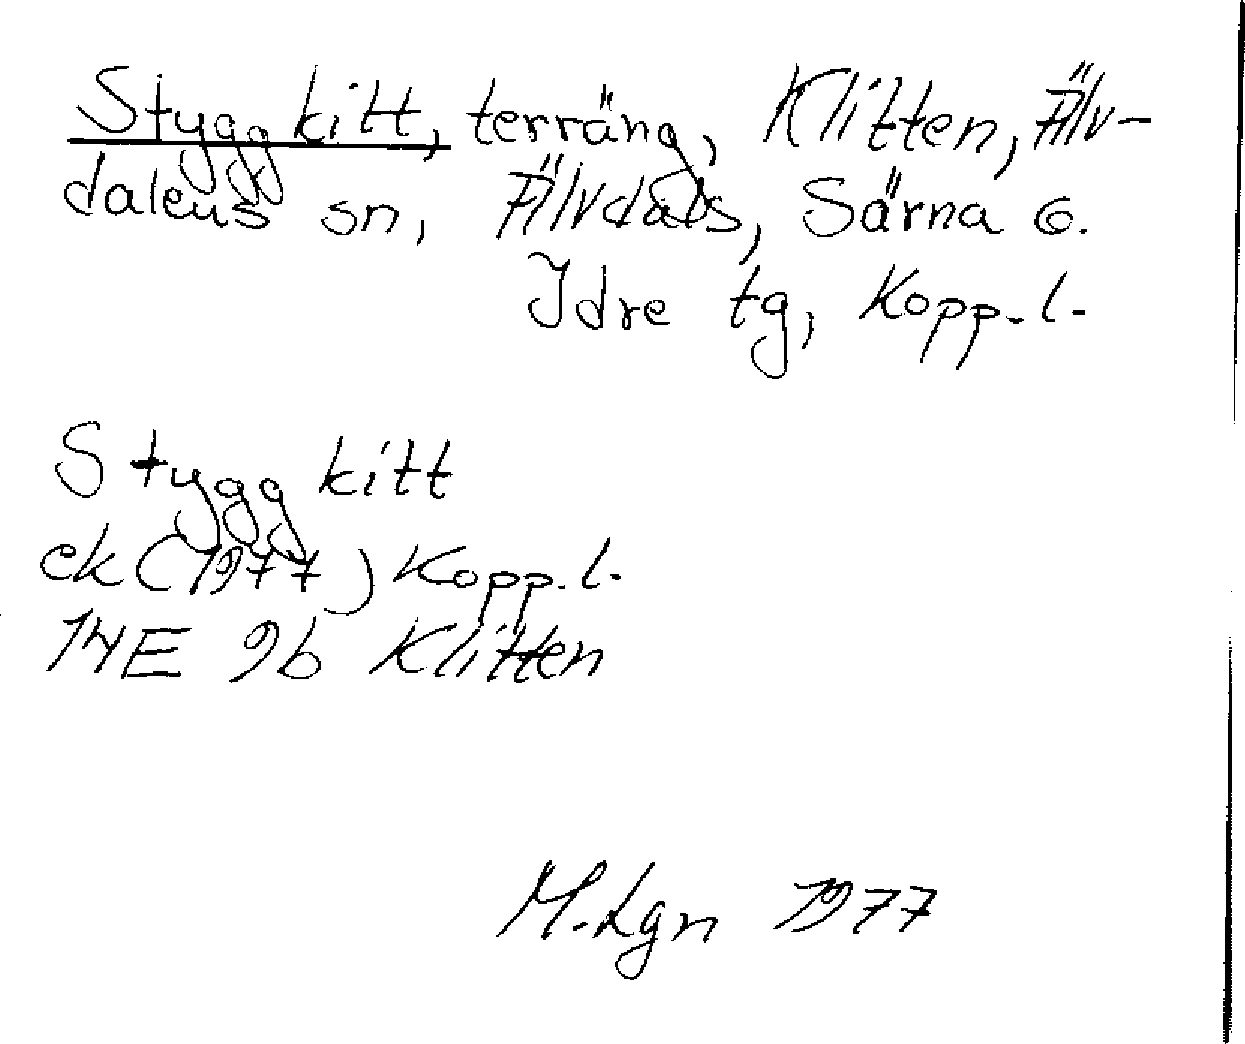 Stygg kitt, terräng, Klitten, Älv-
dalens sn, Älvdals, Särna o.
Idre tg, Kopp. l.
Stygg kitt
ek (1977) Kopp. l.
14E 9b Klitten
M. Lgn 1977